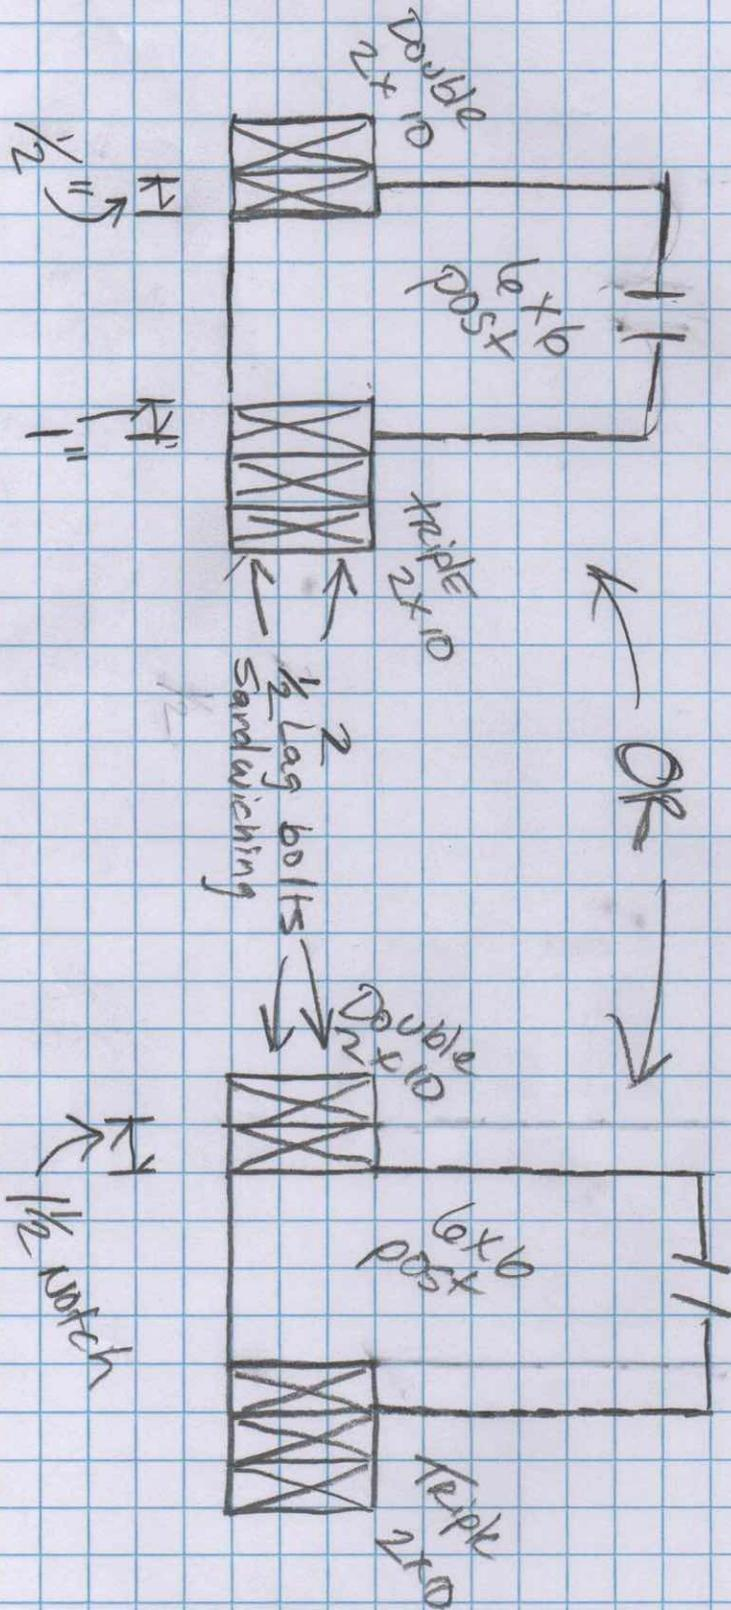 Double
2x10
1/2"
6x6
post
1"
TRiplE
2x10
OR
2
1/2 Lag bolts
sandwiching
Double
2x10
1 1/2 Notch
6x6
post
TRiplE
2x10